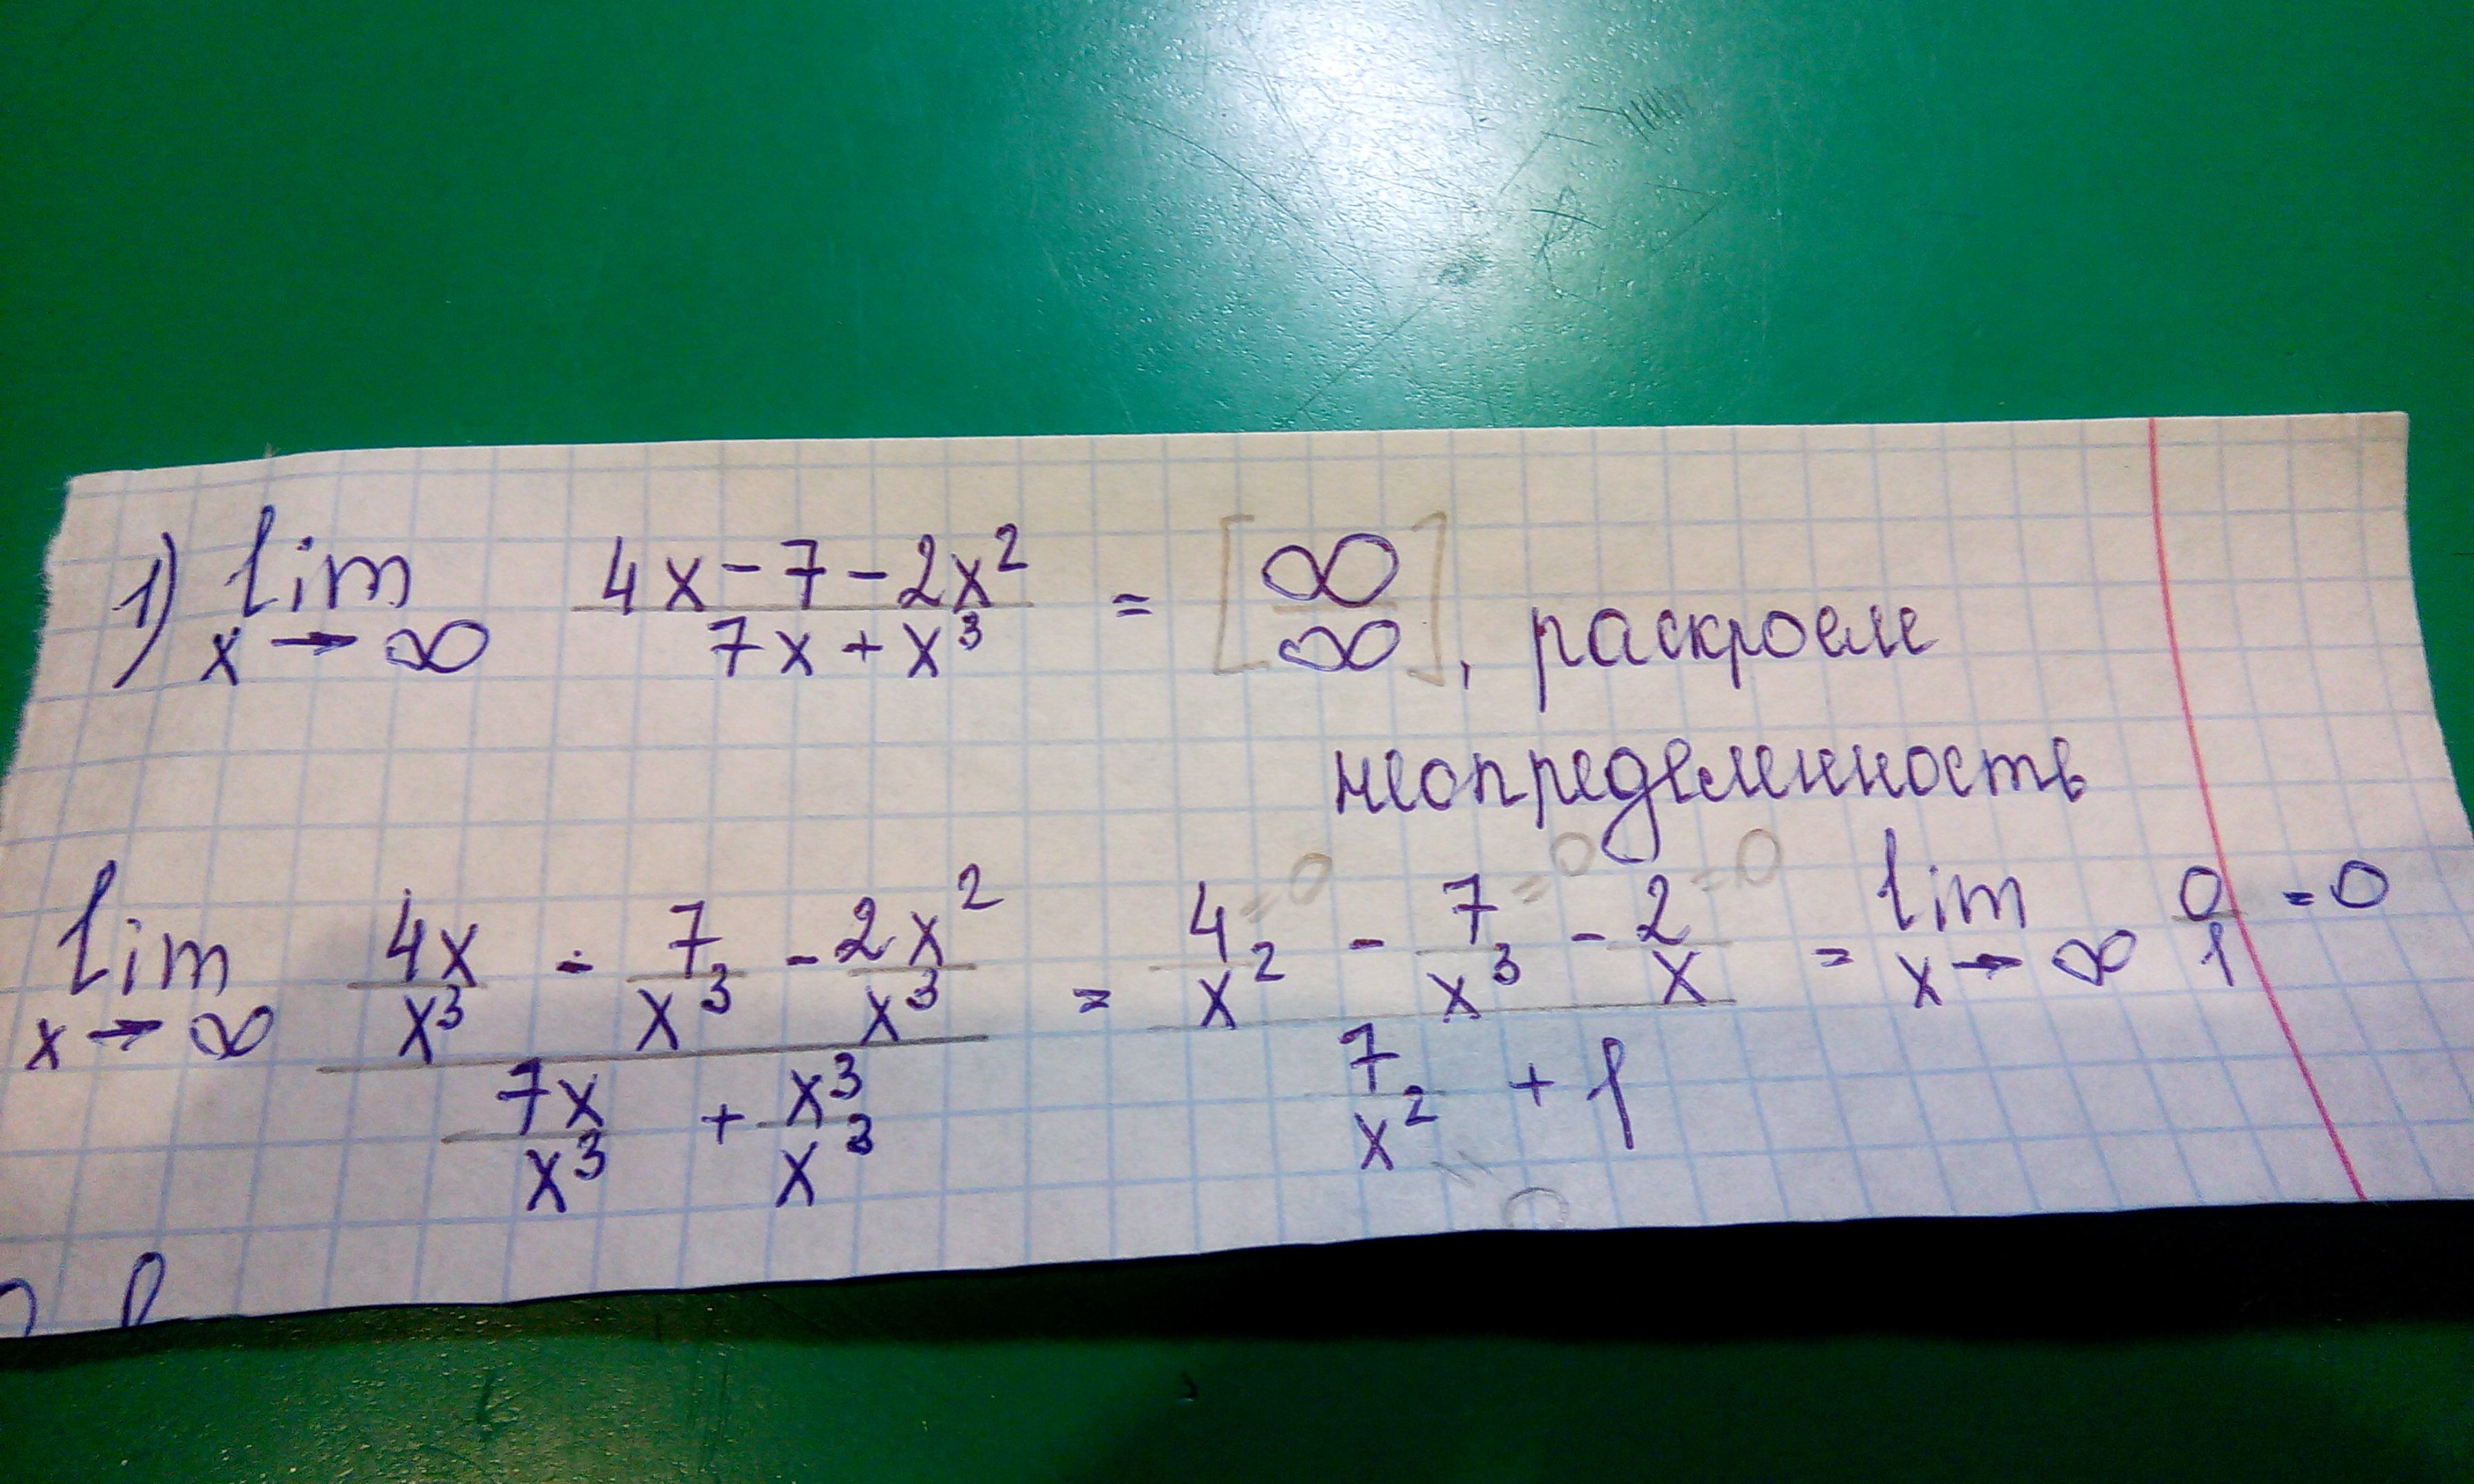 1) lim x→∞ (4x-7-2x²)/(7x+x³) = [∞/∞], раскроем
неопределенность
lim x→∞ (4x/x³ - 7/x³ - 2x²/x³)/(7x/x³ + x³/x³) = (4/x² =0 - 7/x³ =0 - 2/x =0)/(7/x² =0 + 1) = lim x→∞ 0/1 = 0